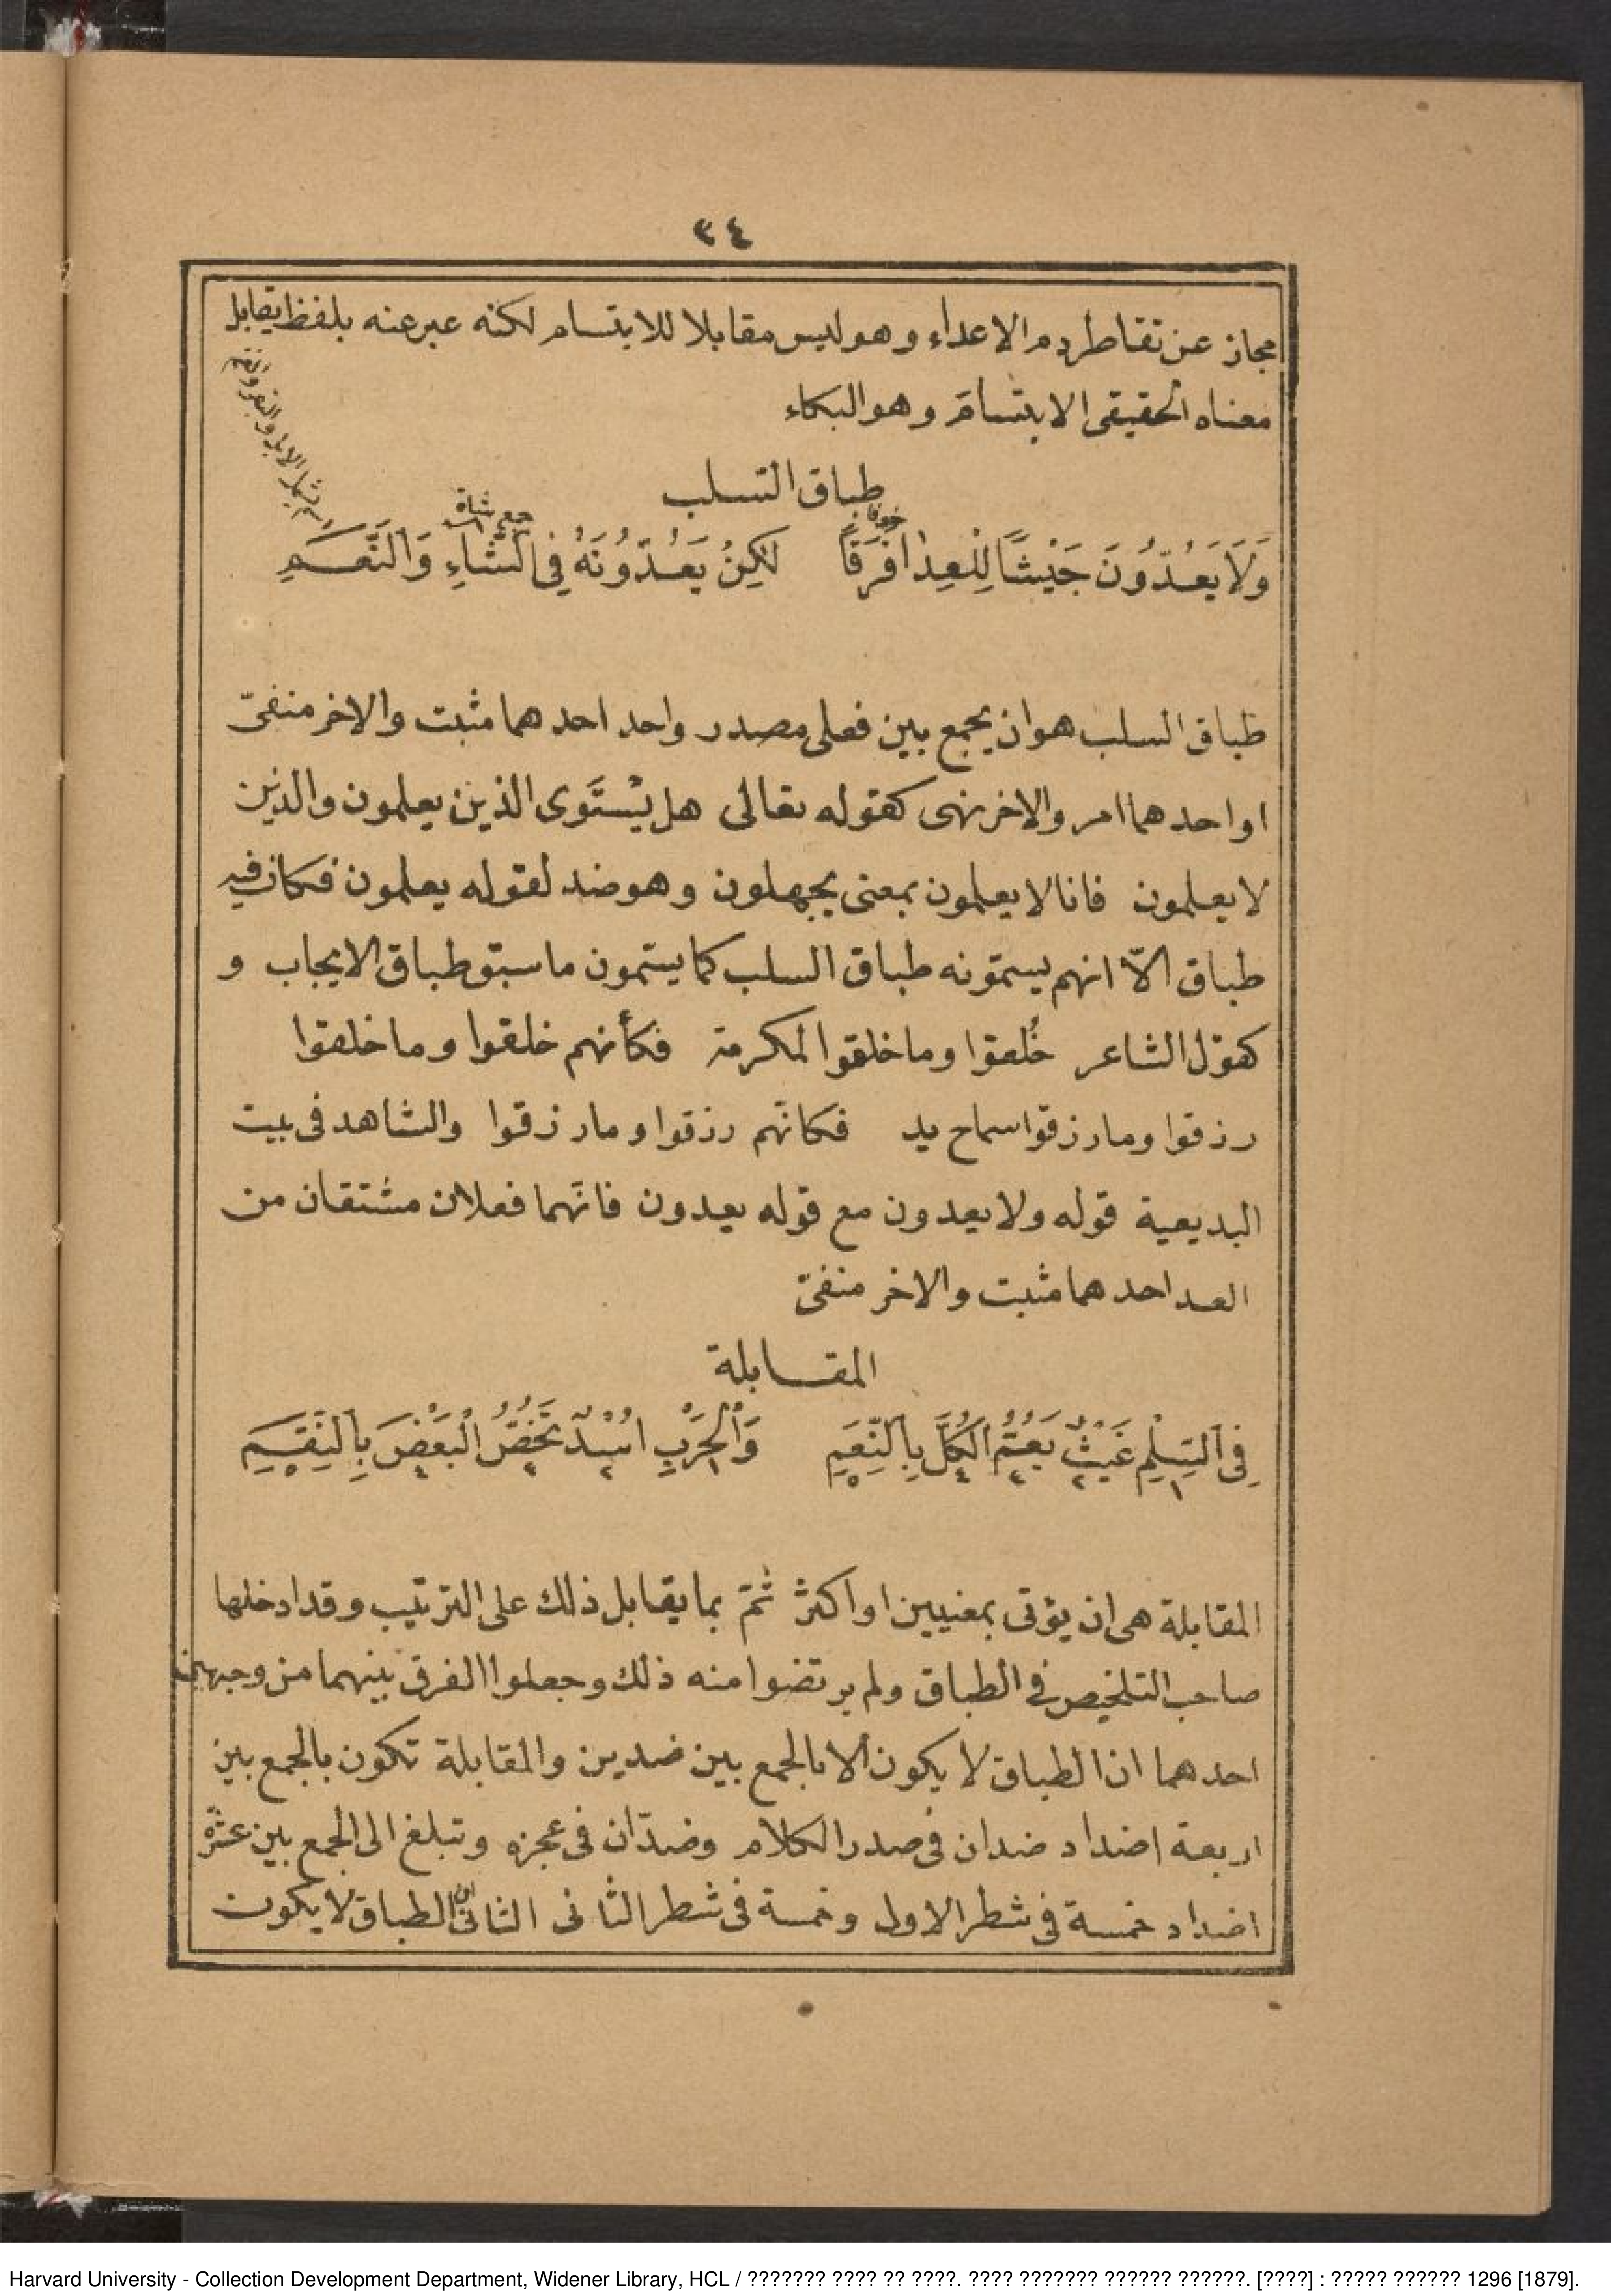 ٣٤
مجاز عن تقاطر دم الاعداء وهو ليس مقابلا للابتسام لكنه عبر عنه بلفظ يقابل
معناه الحقيقى الابتسام وهو البكاء
طباق السلب
خوفا
جمع شاة
وَلَا يَعُدُّونَ جَيْشًا لِلْعِدٰا فَرَقًا لٰكِنْ يَعُدُّونَهُ فِى الشَّاءِ وَالنَّعَمِ
طباق السلب هو ان يجمع بين فعلى مصدر واحد احدهما مثبت والاخر منفىّ
او احدهما امر والاخر نهى كقوله تعالى هل يسْتَوى الذين يعلمون والذين
لا يعلمون فانا لا يعلمون بمعنى يجهلون وهو ضد لقوله يعلمون فكان فيه
طباق الاّ انهم يسمّونه طباق السلب كما يسمون ما سبق طباق الايجاب و
كقول الشاعر خُلقوا وما خلقوا لمكرمة فكأنهم خلقوا وما خلقوا
رزقوا وما رزقوا سماح يد فكانّهم رزقوا وما رزقوا والشاهد فى بيت
البديعية قوله ولا يعدون مع قوله يعدون فانّهما فعلان مشتقان من
العد احدهما مثبت والاخر منفىّ
المقابلة
فِى السِّلْمِ غَيْثٌ يَعُمُّ الْكُلَّ بِالنِّعَمِ وَالْحَرْبِ اُسْدٌ تَخُصُّ الْبَعْضَ بِالنِّقَمِ
١ ٢ ٣ ٤ ٥ ١ ٢ ٣ ٤ ٥
المقابلة هى ان يؤتى بمعنيين او اكثر ثمّ بما يقابل ذلك على الترتيب وقد ادخلها
صاحب التلخيص فى الطباق ولم يرتضوا منه ذلك وجعلوا الفرق بينهما من وجهين
احدهما ان الطباق لا يكون الا بالجمع بين ضدين والمقابلة تكون بالجمع بين
اربعة اضداد ضدان فى صدر الكلام وضدّان فى عجزه وتبلغ الى الجمع بين عشرة
اضداد خمسة فى شطر الاول وخمسة فى شطر الثانى الثانى ان الطباق لا يكون
Harvard University - Collection Development Department, Widener Library, HCL / ??????? ???? ?? ????. ???? ??????? ?????? ??????. [????] : ????? ?????? 1296 [1879].